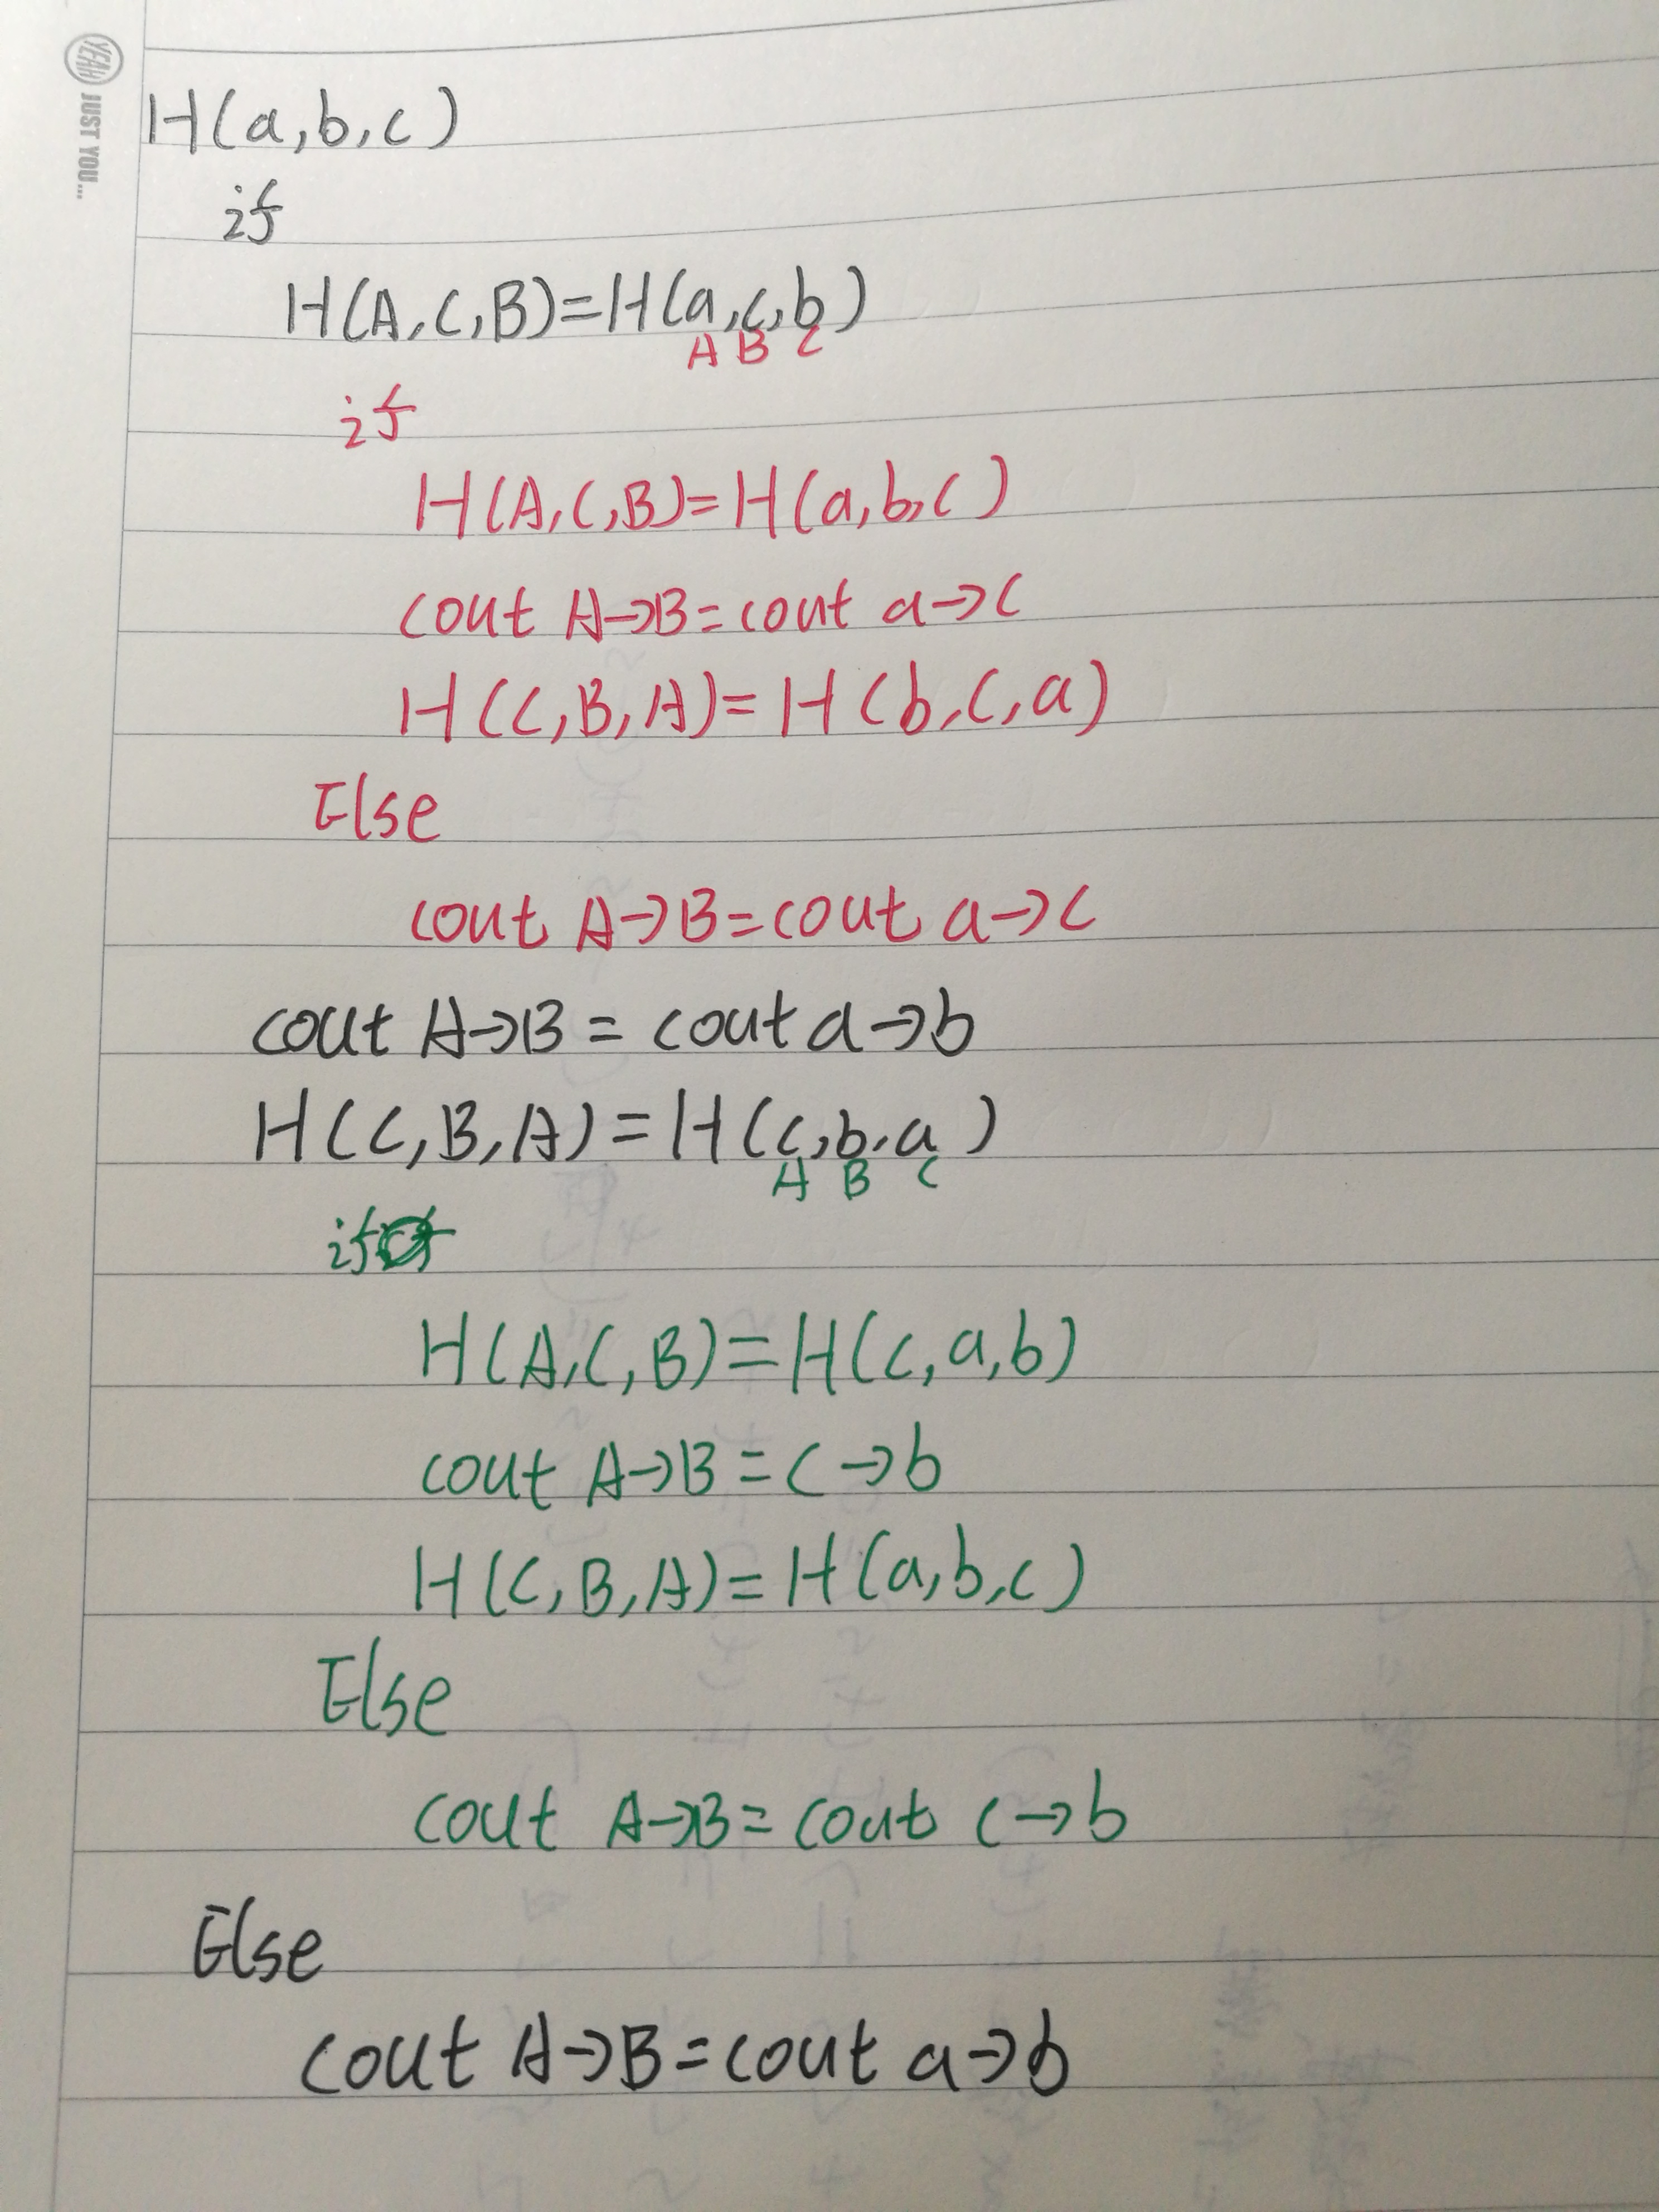 YEAH JUST YOU...
H(a,b,c)
if
H(A,C,B)=H(a,c,b)
A B C
if
H(A,C,B)=H(a,b,c)
cout A→B=cout a→c
H(C,B,A)=H(b,c,a)
Else
cout A→B=cout a→c
cout A→B = cout a→b
H(C,B,A)=H(c,b,a)
A B C
if
H(A,C,B)=H(c,a,b)
cout A→B=c→b
H(C,B,A)=H(a,b,c)
Else
cout A→B=cout c→b
Else
cout A→B=cout a→b